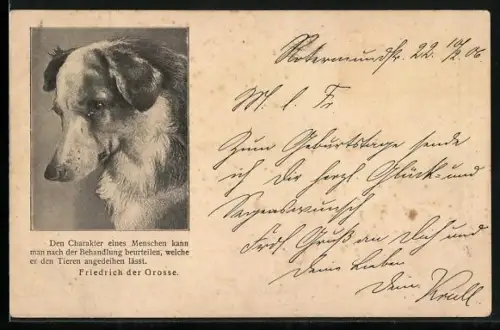 Den Charakter eines Menschen kann
man nach der Behandlung beurteilen, welche
er den Tieren angedeihen lässt.
Friedrich der Grosse.
22. 10/2. 06
M. l. Fr
Zum Geburtstage sende
ich Dir herzl. Glück- und
Segenswunsch
Frdl. Gruß an Dich und
Deine Lieben
Dein Krull.